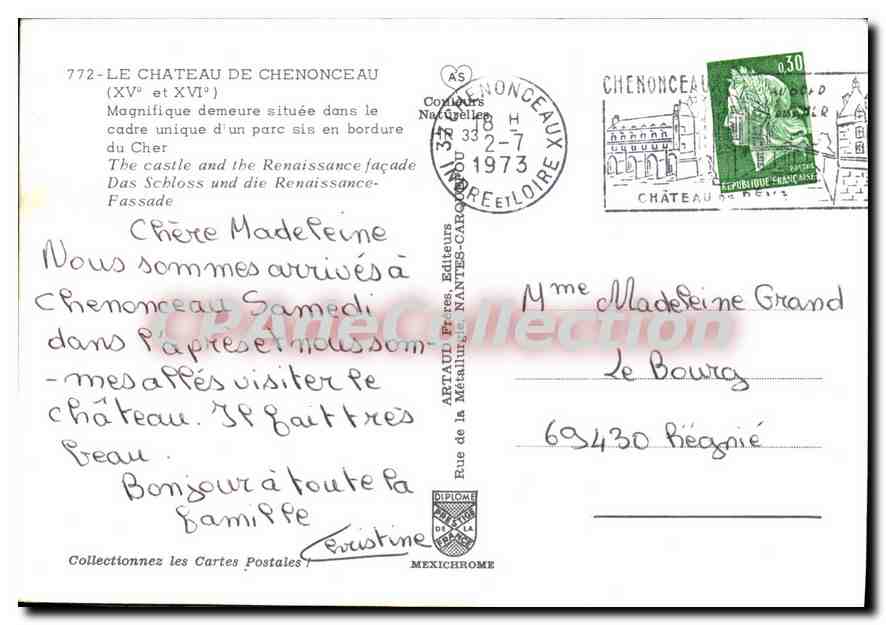 772-LE CHATEAU DE CHENONCEAU
(XVº et XVIº)
Magnifique demeure située dans le
cadre unique d'un parc sis en bordure
du Cher
The castle and the Renaissance façade
Das Schloss und die Renaissance-
Fassade
Chère Madeleine
Nous sommes arrivés à
Chenonceau Samedi
dans l'apreset nous som-
-mes allés visiter le
château. Il fait très
beau.
Bonjour à toute la
famille
Christine
Collectionnez les Cartes Postales !
AS
Couleurs
Naturelles
ARTAUD Frères, Editeurs
Rue de la Métallurgie, NANTES-CARQUEFOU
DIPLOME
PRESTIGE
DE LA
FRANCE
MEXICHROME
37 CHENONCEAUX
18 H
2-7
1973
INDRE ET LOIRE
CHENONCEAU
CHÂTEAU
0,30
REPUBLIQUE FRANÇAISE
Mme Madeleine Grand
Le Bourg
69430 Régnié
CPArteCollection